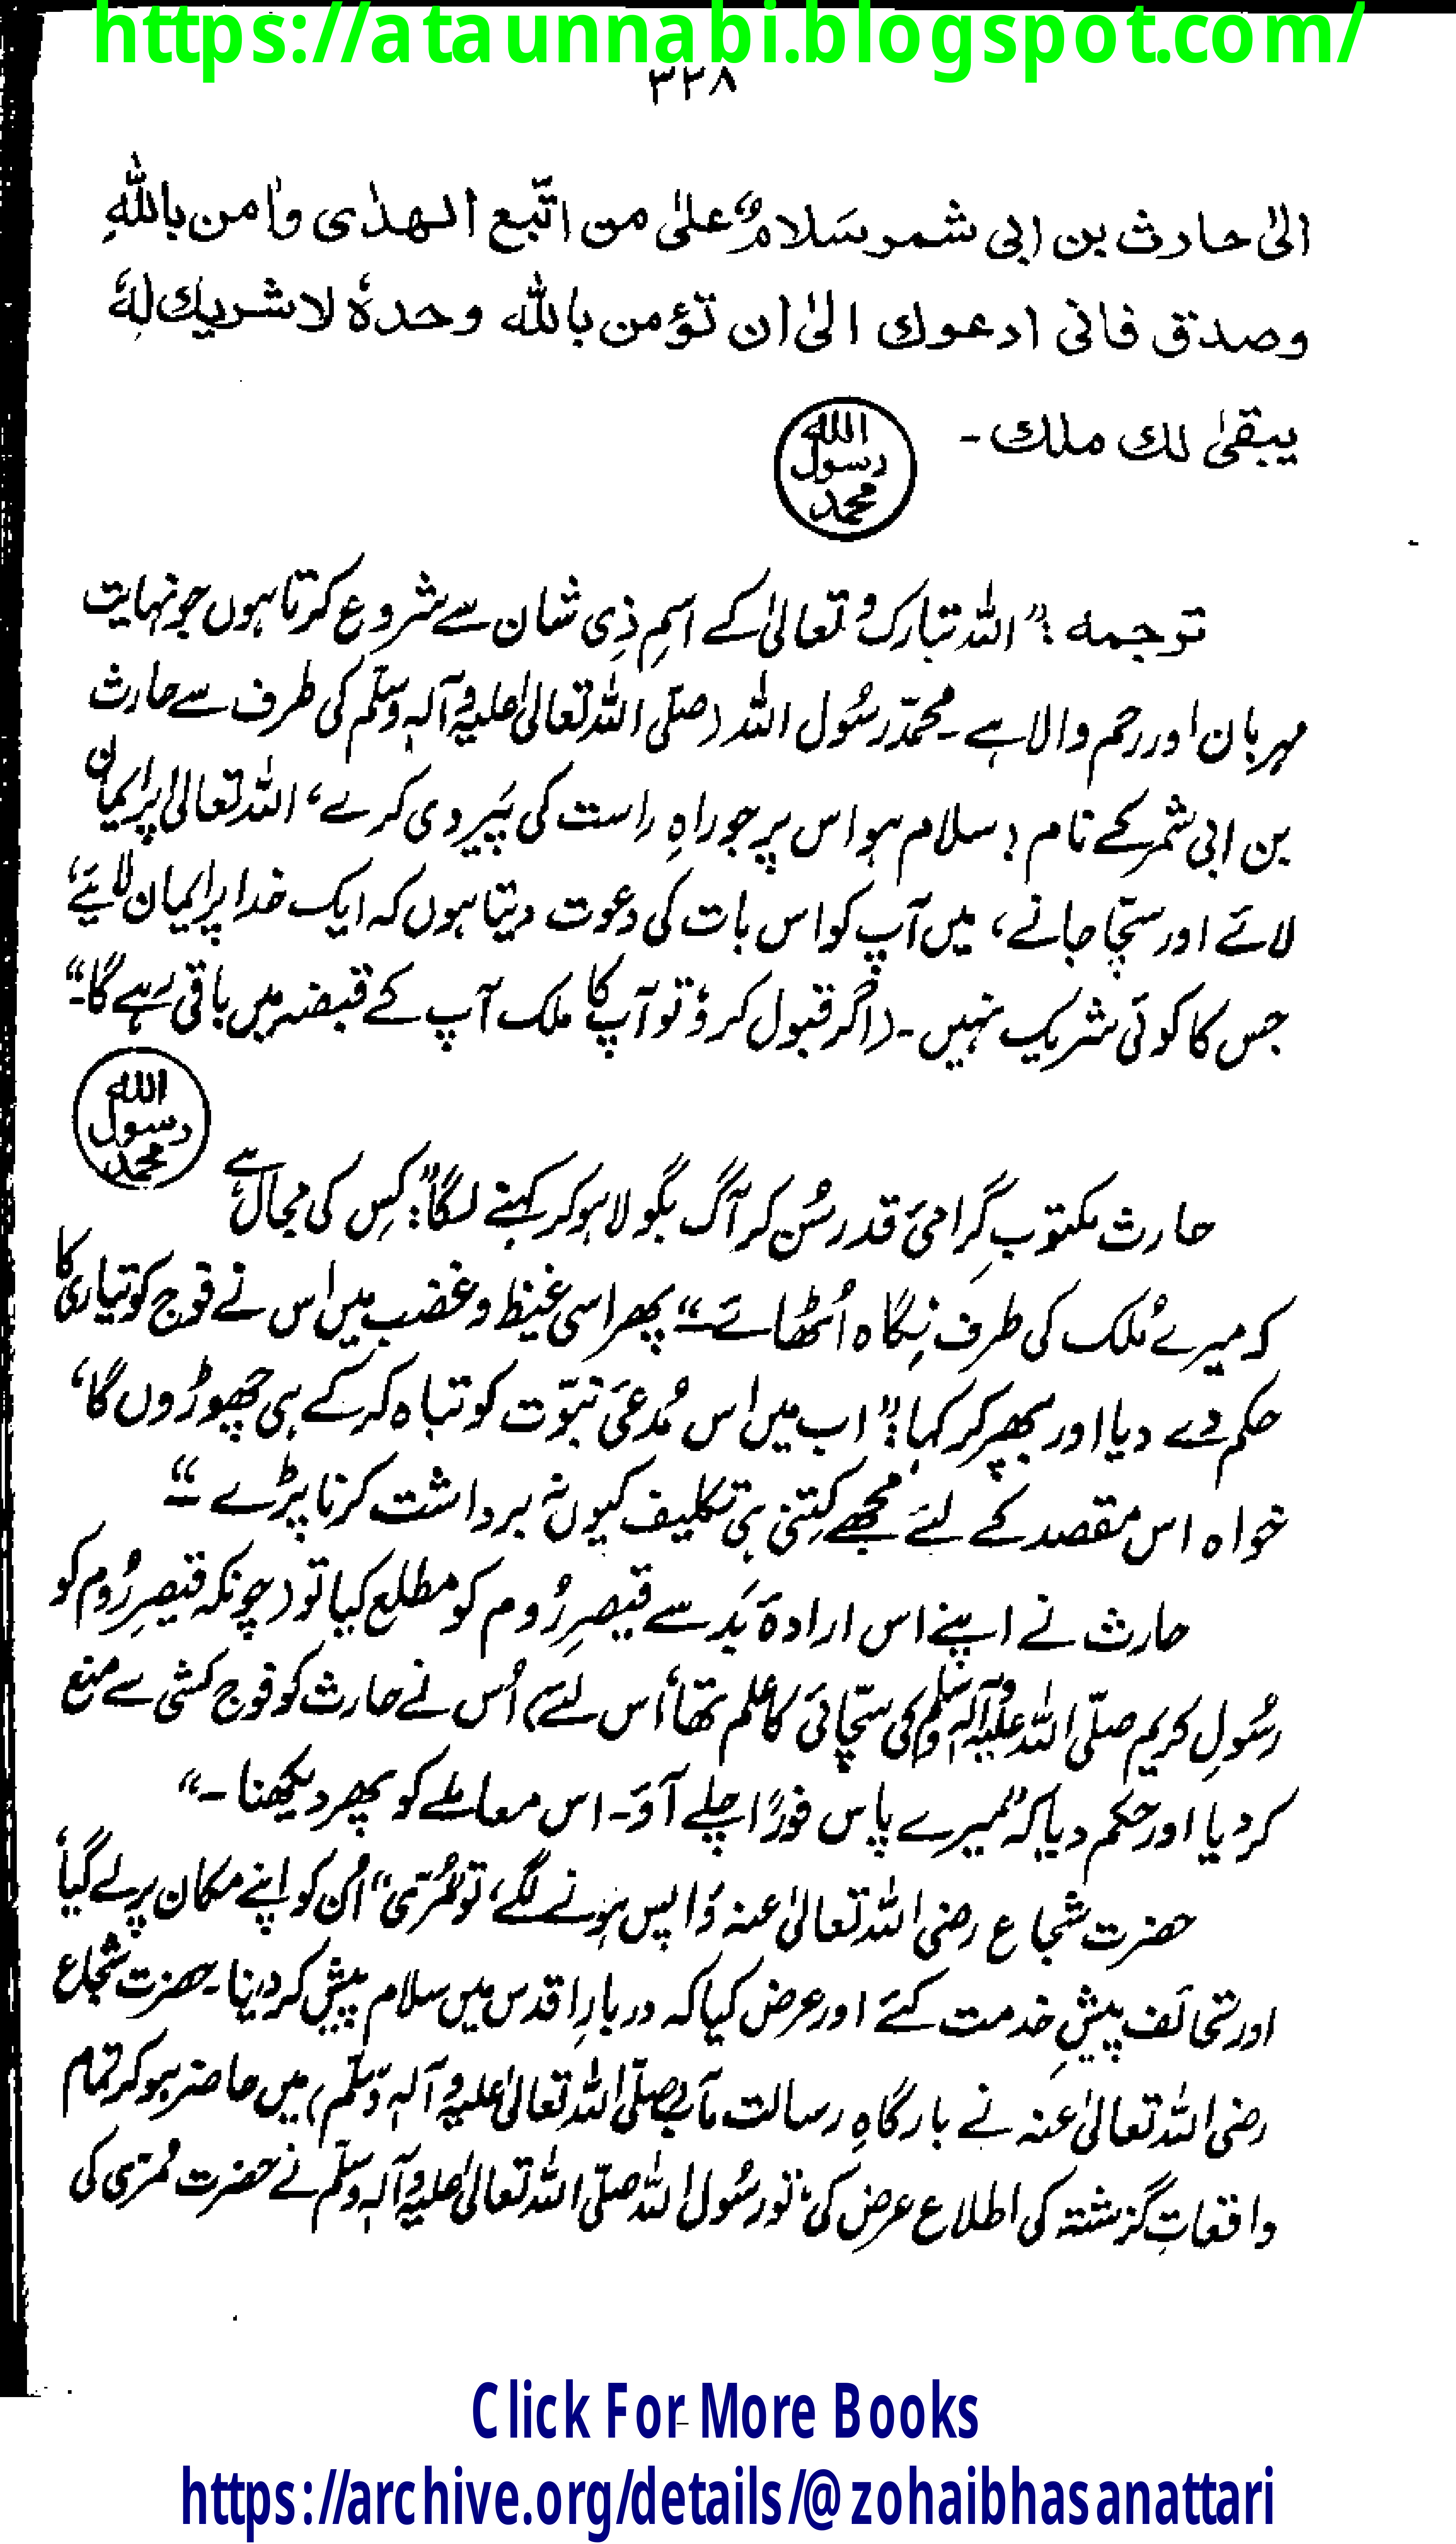 https://ataunnabi.blogspot.com/
۳۲۸
الیٰ حارث بن ابی شمر سَلامٌ علیٰ من اتّبع الهدٰی واٰمن باللّٰهِ
وصدق فانی ادعوك الیٰ ان تؤمن باللّٰه وحدهٗ لا شریك لهٗ
یبقیٰ لك ملك -
اللہ
رسول
محمد
ترجمہ :” اللّٰہ تبارک و تعالیٰ کے اسمِ ذِی شان سے شروع کرتا ہوں جو نہایت
مہربان اور رحم والا ہے۔ محمدّ رسُول اللّٰہ (صلّی اللّٰہ تعالیٰ علیہِ وآلہٖ وسلّم کی طرف سے حارث
بن ابی شمر کے نام ؛ سلام ہو اس پر جو راہِ راست کی پَیروی کرے، اللّٰہ تعالیٰ پر ایمان
لائے اور سچّا جانے، میں آپ کو اس بات کی دعوت دیتا ہوں کہ ایک خدا پر ایمان لائیے،
جس کا کوئی شریک نہیں۔ (اگر قبول کرو) تو آپ کا ملک آپ کے قبضہ میں باقی رہے گا۔“
اللہ
رسول
محمد
حارث مکتوبِ گرامیٔ قدر سُن کر آگ بگولا ہو کر کہنے لگا:” کِس کی مجال ہے
کہ میرے مُلک کی طرف نِگاہ اُٹھائے۔“ پھر اسی غیظ و غضب میں اس نے فوج کو تیاری کا
حکم دے دیا اور بھپر کر کہا:” اب میں اس مُدعیٔ نبوّت کو تباہ کر کے ہی چھوڑوں گا،
خواہ اس مقصد کے لئے مجھے کِتنی ہی تکلیف کیوں نہ برداشت کرنا پڑے ۔“
حارث نے اپنے اس ارادۂ بَد سے قیصرِ رُوم کو مطلع کیا تو (چونکہ قیصرِ رُوم کو
رسُولِ کریم صلّی اللّٰہ علیہِ وآلہٖ وسلّم کی سچّائی کا علم تھا، اس لئے) اُس نے حارث کو فوج کشی سے منع
کر دیا اور حکم دیا کہ ”میرے پاس فورًا چلے آؤ۔ اس معاملے کو پھر دیکھنا ۔“
حضرت شجاع رضی اللّٰہ تعالیٰ عنہ وَاپس ہونے لگے، تو ”مُرّی“ اُن کو اپنے مکان پر لے گیا،
اور تحائف پیشِ خدمت کئے اور عرض کیا کہ دربارِ اقدس میں سلام پیش کر دینا۔ حضرت شجاع
رضی اللّٰہ تعالیٰ عنہ نے بارگاہِ رسالت مآب (صلّی اللّٰہ تعالیٰ علیہِ وآلہٖ وسلّم) میں حاضر ہو کر تمام
واقعاتِ گزشتہ کی اطلاع عرض کی، تو رسُول اللّٰہ صلّی اللّٰہ تعالیٰ علیہِ وآلہٖ وسلّم نے حضرت مُرّی کی
Click For More Books
https://archive.org/details/@zohaibhasanattari